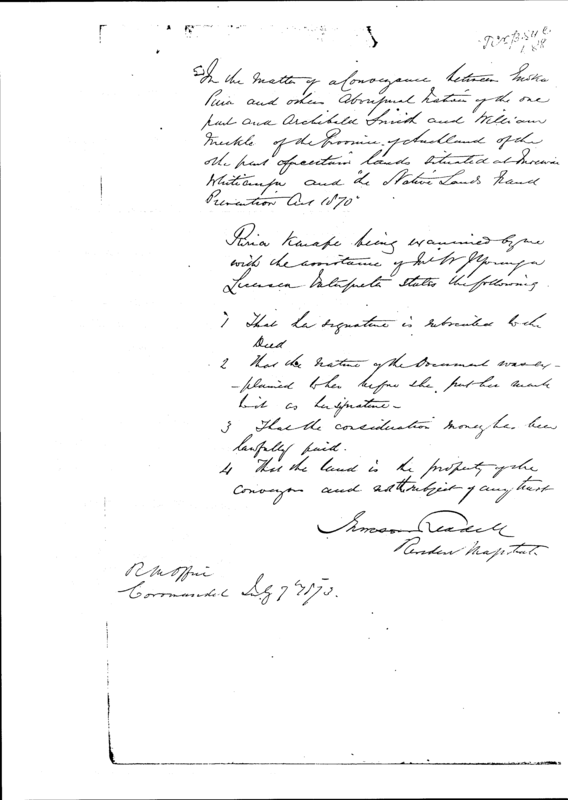 In the matter of a Conveyance between
Puia and others Aboriginal Natives of the one
part and Archibald Smith and William
Meikle of the Province of Auckland of the
other part of certain lands situated at
and the Native Lands Fraud
Prevention Act 1870
Riria being examined by me
with the assistance of Mr W
Licensed Interpreter states the following
1 That her signature is subscribed to the
Deed
2 That the nature of the Document was ex-
-plained to her before she put her mark
to it as her signature -
3 That the consideration money has been
lawfully paid.
4 That the land is the property of the
conveyors and not subject of any trust
Resident Magistrate
R M Office
Coromandel July 7th 1873.